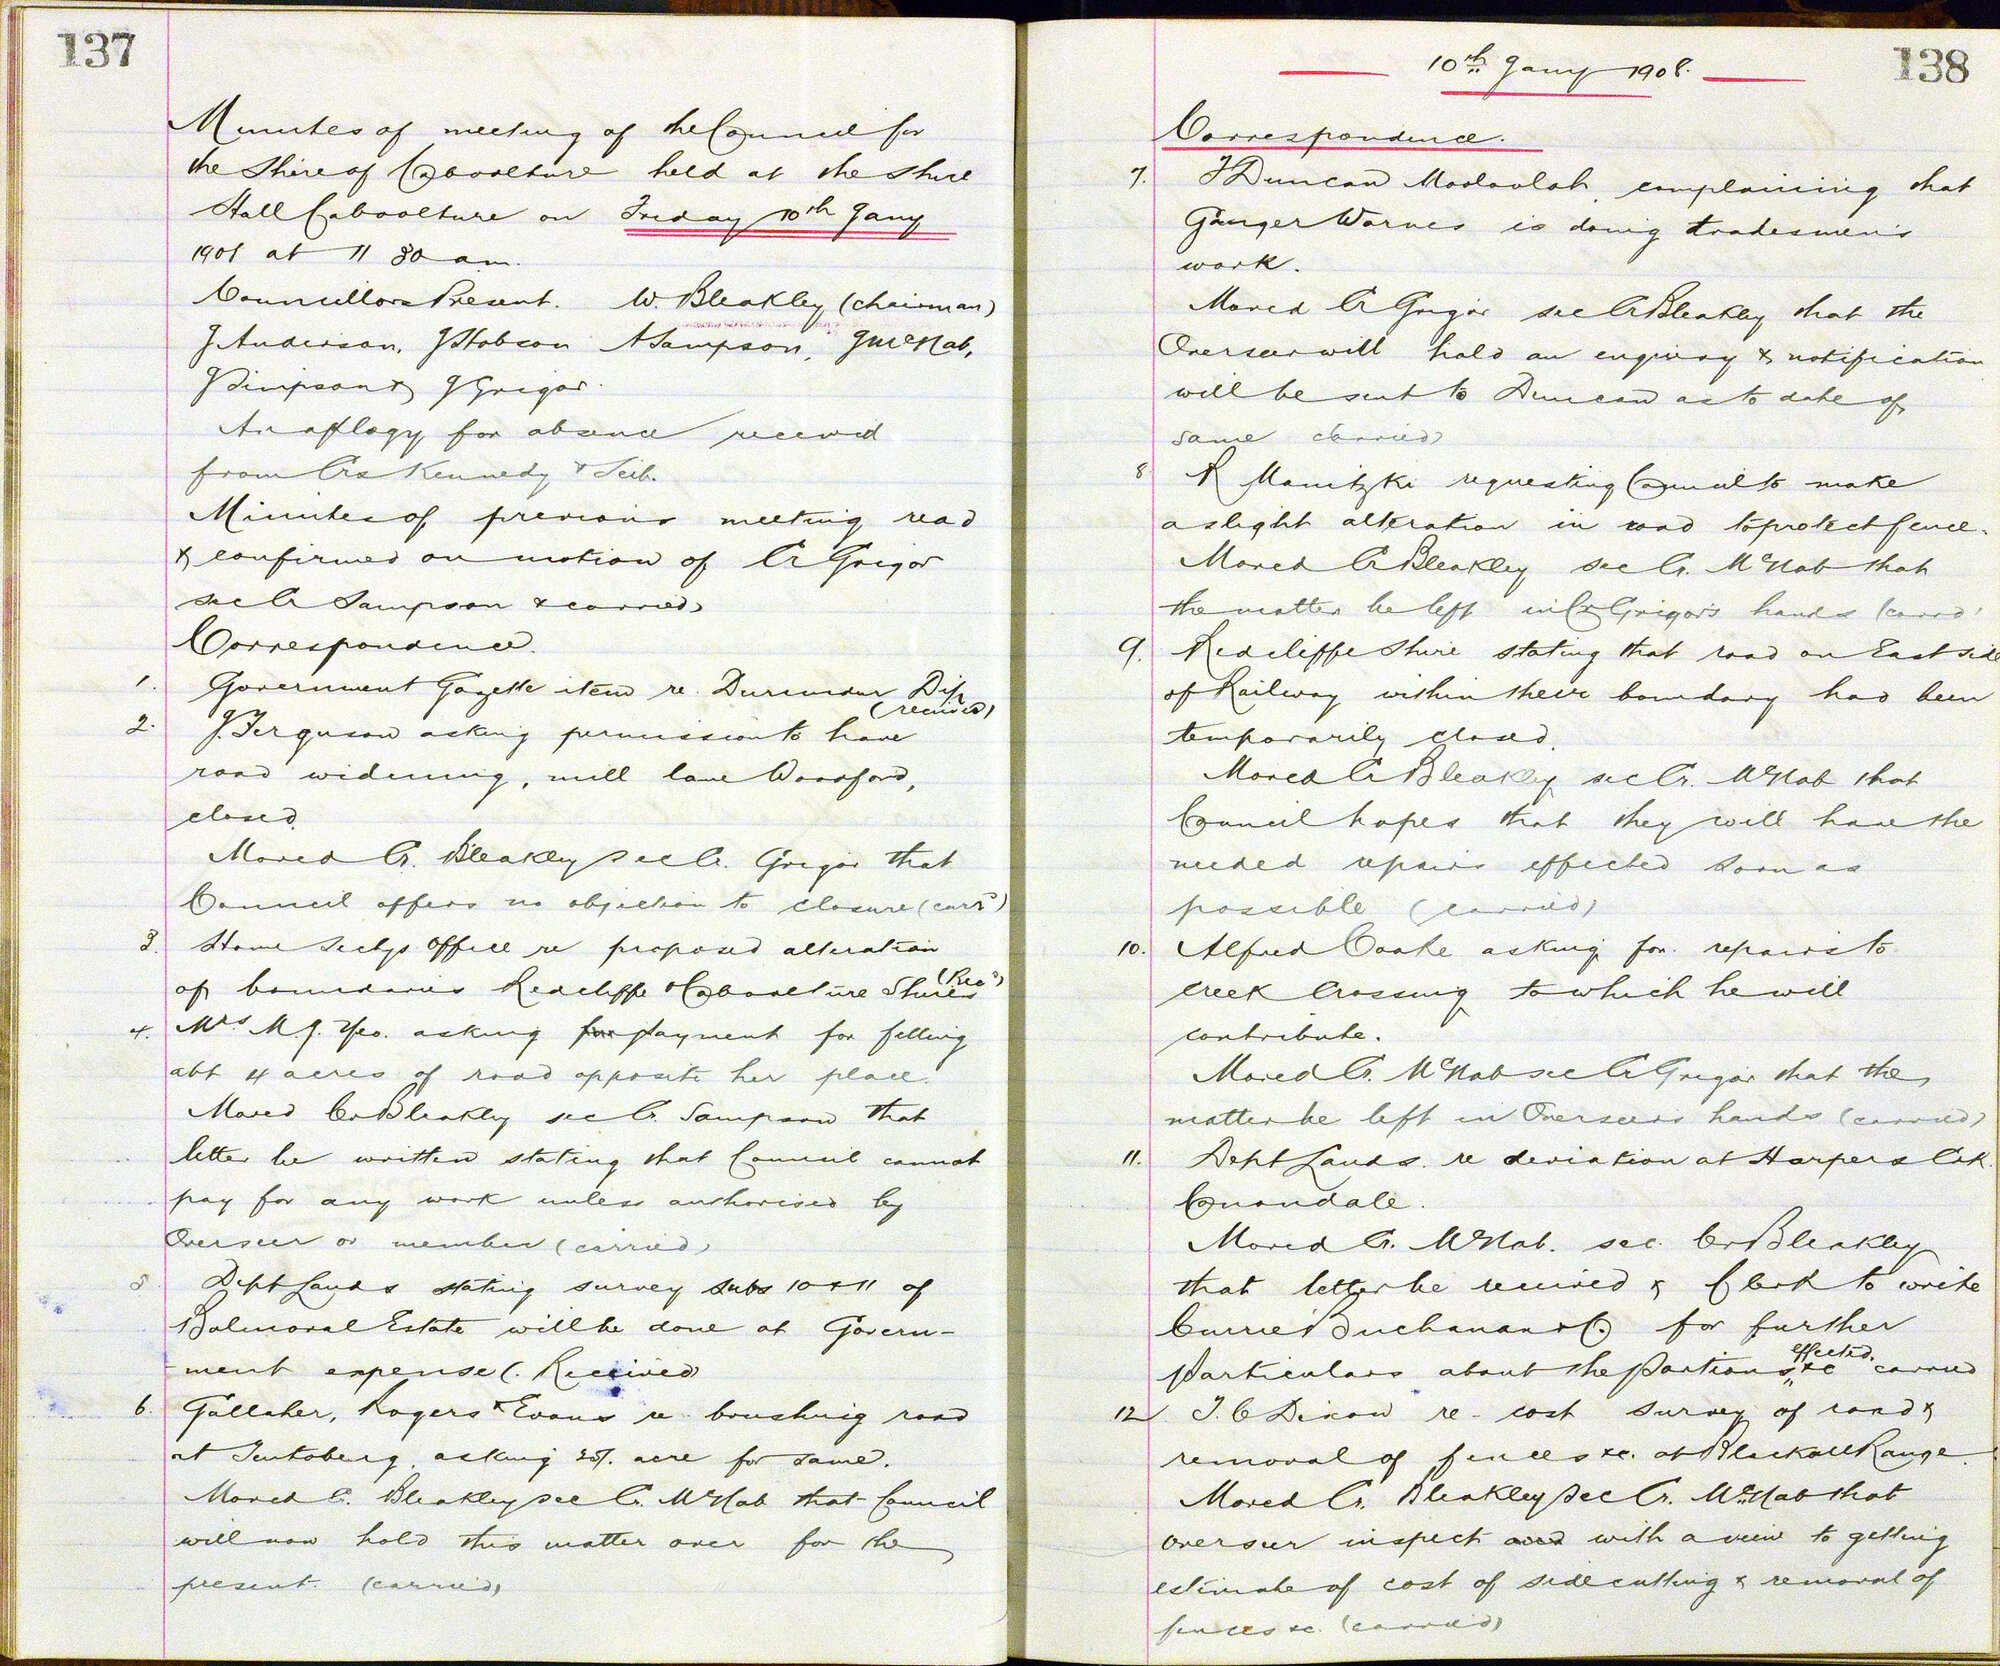 137
Minutes of meeting of the Council for
the Shire of Caboolture held at the Shire
Hall Caboolture on Friday 10th Jany
1908 at 11 30 am.
Councillors Present. W. Bleakley (chairman)
J Anderson, J Hobson A Sampson, J McNab,
J Simpson & J Grigor.
An apology for absence received
from Crs Kennedy & Seib.
Minutes of previous meeting read
& confirmed on motion of Cr Grigor
sec Cr Sampson & carried
Correspondence.
1. Government Gazette item re. Durundur Dip
(received)
2. J. Ferguson asking permission to have
road widening, mill lane Woodford,
closed.
Moved Cr. Bleakley sec Cr. Grigor that
Council offers no objection to closure (carrd)
3. Home Secys Office re proposed alteration
of boundaries Redcliffe & Caboolture Shires (Recd)
4. Mrs M. J. Yeo. asking for payment for felling
abt 4 acres of road opposite her place.
Moved Cr Bleakley sec Cr. Sampson that
letter be written stating that Council cannot
pay for any work unless authorised by
Overseer or member (carried)
5 Dept Lands stating survey subs 10 & 11 of
Balmoral Estate will be done at Govern-
-ment expense (. Received
6. Gallaher, Rogers & Evans re brushing road
at Teutoberg, asking /. acre for same.
Moved C. Bleakley sec Cr. McNab that Council
will now hold this matter over for the
present. (carried)
138
10th Jany 1908.
Correspondence.
7. J Duncan Moodlah, complaining that
Ganger Warnes is doing tradesmen's
work.
Moved Cr Grigor sec Cr Bleakley that the
Overseer will hold an enquiry & notification
will be sent to Duncan as to date of
same carried
8. R Manitzki requesting Council to make
a slight alteration in road to protect fence.
Moved Cr Bleakley sec Cr. McNab that
the matter be left in Cr Grigor's hands (carrd)
9. Redcliffe Shire stating that road on East side
of Railway within their boundary had been
temporarily closed.
Moved Cr Bleakley sec Cr. McNab that
Council hopes that they will have the
needed repairs effected soon as
possible (carried)
10. Alfred Cooke asking for repairs to
creek crossing to which he will
contribute.
Moved Cr. McNab sec Cr Grigor that the
matter be left in Overseers hands (carried)
11. Dept Lands. re deviation at Harpers Crk.
Conondale.
Moved Cr. McNab. sec. Cr Bleakley
that letter be received & Clerk to write
Currie Buchanan & Co for further
particulars about the Portions effected. &c carried
12. J. C Dixon re - cost survey of road &
removal of fences &c. at Blackall Range.
Moved Cr. Bleakley sec Cr. McNab that
overseer inspect and with a view to getting
estimate of cost of sidecutting & removal of
fences &c. (carried)